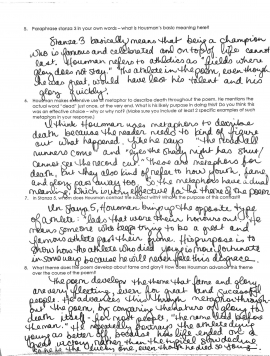 5. Paraphrase stanza 3 in your own words – what is Housman's basic meaning here?
Stanza 3 basically means that being a champion
who is famous and celebrated and on top of life cannot
last. Housman refers to athletics as "fields where
glory does not stay." The athlete in the poem, even though
he was great, would have lost his talent and his
glory quickly.
6. Housman makes extensive use of metaphor to describe death throughout the poem. He mentions the
actual word "death" just once, at the very end. What is his likely purpose in doing this? Do you think this
was an effective choice? Why or why not? (Make sure you include at least 2 specific examples of such
metaphor in your response.)
I think Housman uses metaphors to describe
death because the reader needs to kind of figure
out what happened. Like he says "The road all
runners come" and "eyes the shady night has shut/
cannot see the record cut." These are metaphors for
death, but they also kind of refer to how youth, fame,
and glory pass away too. So the metaphors have a dual
meaning which is very effective for the theme of the poem.
7. In Stanza 5, whom does Housman contrast the subject with? Explain the purpose of this contrast.
In Stanza 5, Housman brings up the opposite type
of athlete: "lads that wore their honours out." He
means someone who keeps trying to be a great and
famous athlete past their prime. His purpose is to
show how the athlete who died young is more fortunate
in some ways because he will never face this disgrace.
8. What theme does the poem develop about fame and glory? How does Housman advance this theme
over the course of the poem?
The poem develops the theme that fame and glory
are very fleeting, even for great and successful
people. He advances this through metaphor through
out the poem, by comparing the nature of glory to
death itself, for most people "the name died before
the man." He repeatedly portrays the athlete dying
young as better off because his life ended on a
great victory rather than the typical slow decline
so he is the lucky one, even though he died so young.